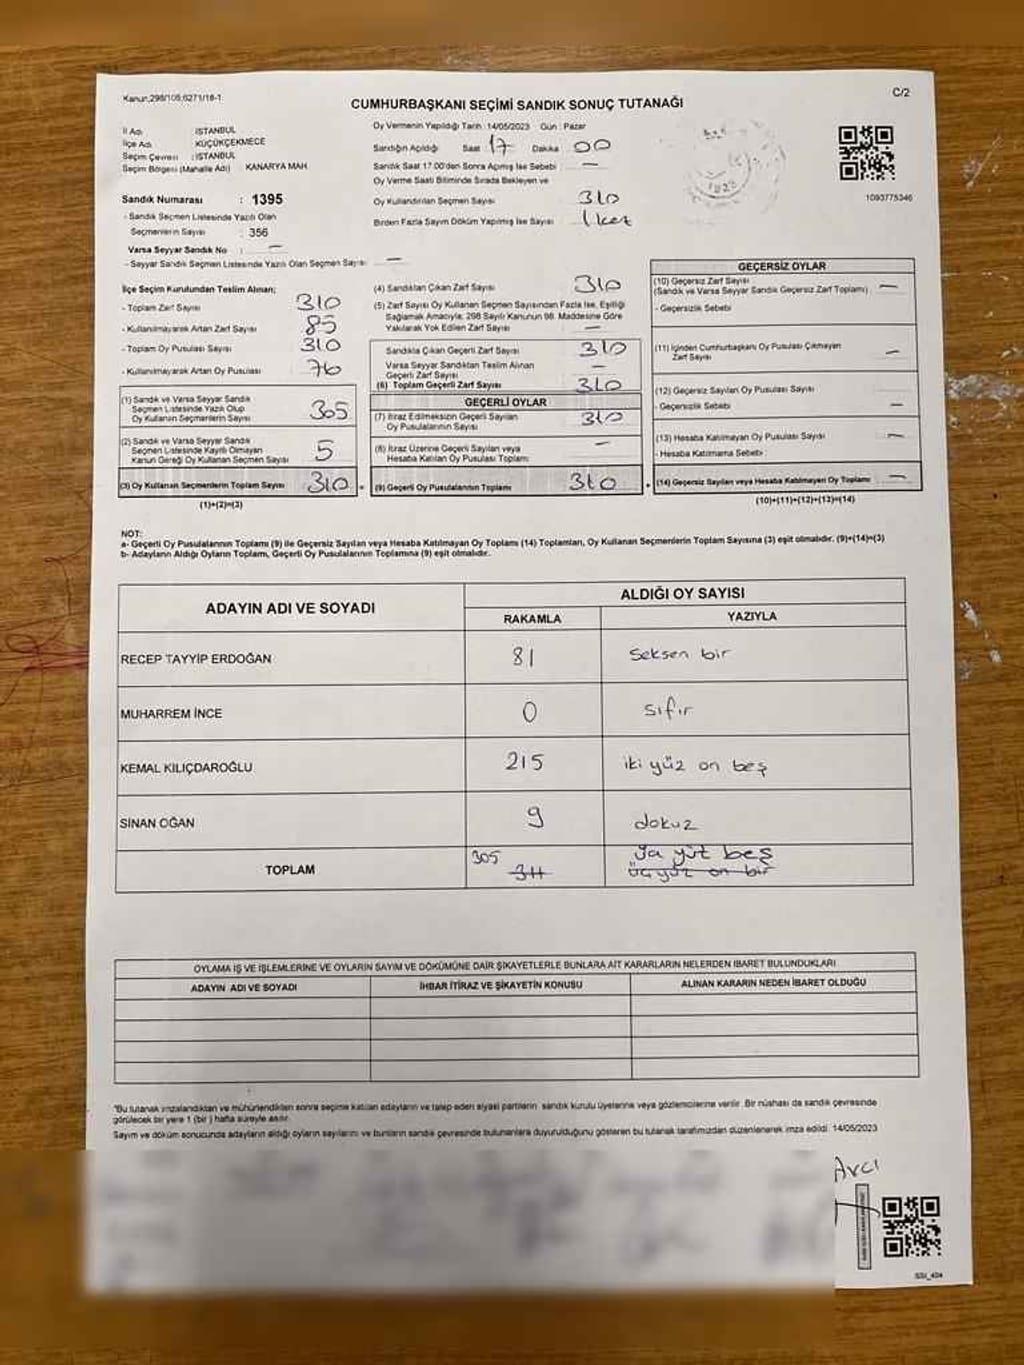 Kanun;298/105;6271/18-1
CUMHURBAŞKANI SEÇİMİ SANDIK SONUÇ TUTANAĞI
C/2
İl Adı : İSTANBUL
İlçe Adı : KÜÇÜKÇEKMECE
Seçim Çevresi : İSTANBUL
Seçim Bölgesi (Mahalle Adı) KANARYA MAH.
Sandık Numarası : 1395
- Sandık Seçmen Listesinde Yazılı Olan
Seçmenlerin Sayısı : 356
Varsa Seyyar Sandık No : —
- Seyyar Sandık Seçmen Listesinde Yazılı Olan Seçmen Sayısı —
Oy Vermenin Yapıldığı Tarih : 14/05/2023 Gün : Pazar
Sandığın Açıldığı Saat 17 Dakika 00
Sandık Saat 17.00'den Sonra Açmış İse Sebebi —
Oy Verme Saati Bitiminde Sırada Bekleyen ve
Oy Kullandırılan Seçmen Sayısı 310
Birden Fazla Sayım Döküm Yapılmış İse Sayısı 1 kez
1093775346
İlçe Seçim Kurulundan Teslim Alınan;
- Toplam Zarf Sayısı 310
- Kullanılmayarak Artan Zarf Sayısı 85
- Toplam Oy Pusulası Sayısı 310
- Kullanılmayarak Artan Oy Pusulası 76
(1) Sandık ve Varsa Seyyar Sandık
Seçmen Listesinde Yazılı Olup
Oy Kullanan Seçmenlerin Sayısı 305
(2) Sandık ve Varsa Seyyar Sandık
Seçmen Listesinde Kayıtlı Olmayan
Kanun Gereği Oy Kullanan Seçmen Sayısı 5
(3) Oy Kullanan Seçmenlerin Toplam Sayısı 310
(1)+(2)=(3)
(4) Sandıktan Çıkan Zarf Sayısı 310
(5) Zarf Sayısı Oy Kullanan Seçmen Sayısından Fazla İse, Eşitliği
Sağlamak Amacıyla; 298 Sayılı Kanunun 98. Maddesine Göre
Yakılarak Yok Edilen Zarf Sayısı —
Sandıkta Çıkan Geçerli Zarf Sayısı 310
Varsa Seyyar Sandıktan Teslim Alınan
Geçerli Zarf Sayısı —
(6) Toplam Geçerli Zarf Sayısı 310
GEÇERLİ OYLAR
(7) İtiraz Edilmeksizin Geçerli Sayılan
Oy Pusulalarının Sayısı 310
(8) İtiraz Üzerine Geçerli Sayılan veya
Hesaba Katılan Oy Pusulası Toplamı —
(9) Geçerli Oy Pusulalarının Toplamı 310
GEÇERSİZ OYLAR
(10) Geçersiz Zarf Sayısı
(Sandık ve Varsa Seyyar Sandık Geçersiz Zarf Toplamı) —
- Geçersizlik Sebebi
(11) İçinden Cumhurbaşkanı Oy Pusulası Çıkmayan
Zarf Sayısı —
(12) Geçersiz Sayılan Oy Pusulası Sayısı
- Geçersizlik Sebebi —
(13) Hesaba Katılmayan Oy Pusulası Sayısı —
- Hesaba Katılmama Sebebi
(14) Geçersiz Sayılan veya Hesaba Katılmayan Oy Toplamı —
(10)+(11)+(12)+(13)=(14)
NOT:
a- Geçerli Oy Pusulalarının Toplamı (9) ile Geçersiz Sayılan veya Hesaba Katılmayan Oy Toplamı (14) Toplamları, Oy Kullanan Seçmenlerin Toplam Sayısına (3) eşit olmalıdır. (9)+(14)=(3)
b- Adayların Aldığı Oyların Toplamı, Geçerli Oy Pusulalarının Toplamına (9) eşit olmalıdır.
ADAYIN ADI VE SOYADI
ALDIĞI OY SAYISI
RAKAMLA YAZIYLA
RECEP TAYYİP ERDOĞAN 81 seksen bir
MUHARREM İNCE 0 sıfır
KEMAL KILIÇDAROĞLU 215 iki yüz on beş
SİNAN OĞAN 9 dokuz
TOPLAM 305 yüz beş
311 üç yüz on bir
OYLAMA İŞ VE İŞLEMLERİNE VE OYLARIN SAYIM VE DÖKÜMÜNE DAİR ŞİKAYETLERLE BUNLARA AİT KARARLARIN NELERDEN İBARET BULUNDUKLARI
ADAYIN ADI VE SOYADI İHBAR İTİRAZ VE ŞİKAYETİN KONUSU ALINAN KARARIN NEDEN İBARET OLDUĞU
*Bu tutanak imzalandıktan ve mühürlendikten sonra seçime katılan adayların ve talep eden siyasi partilerin sandık kurulu üyelerine veya gözlemcilerine verilir. Bir nüshası da sandık çevresinde
görülecek bir yere 1 (bir) hafta süreyle asılır.
Sayım ve döküm sonucunda adayların aldığı oyların sayılarını ve bunların sandık çevresinde bulunanlara duyurulduğunu gösteren bu tutanak tarafımızdan düzenlenerek imza edildi. 14/05/2023
Avcı
SSI_404